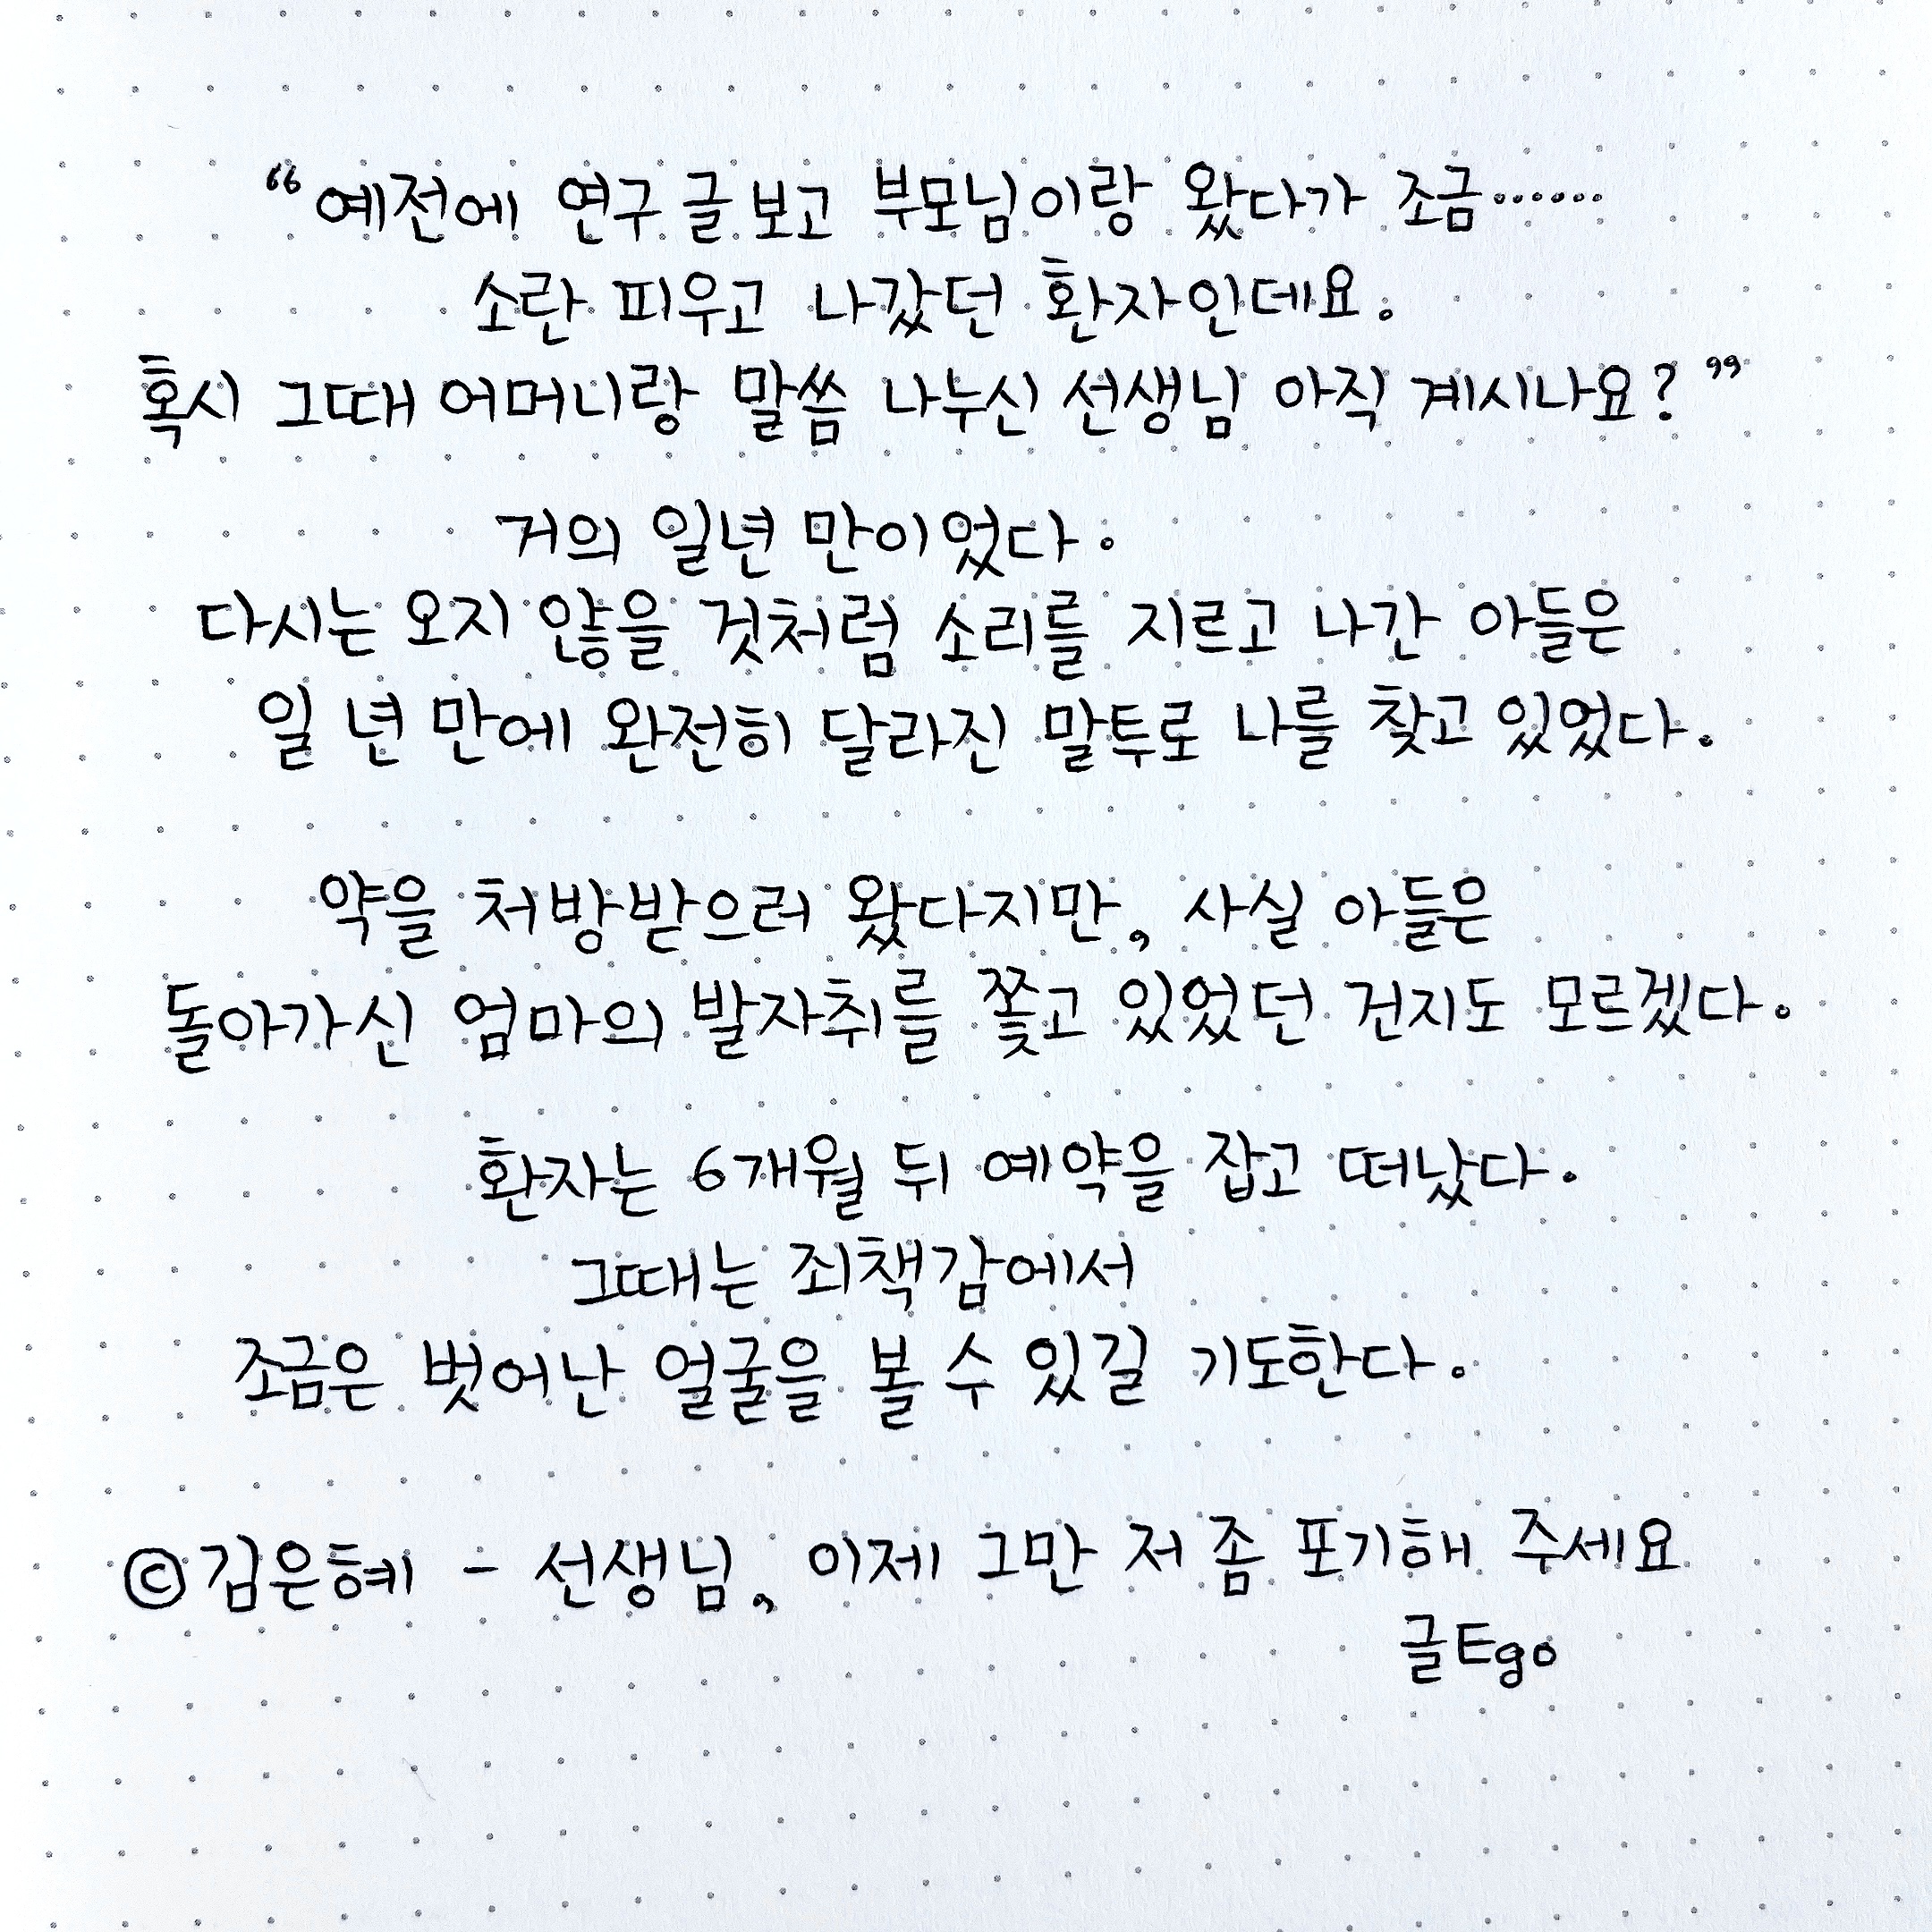 “예전에 연구 글 보고 부모님이랑 왔다가 조금……
소란 피우고 나갔던 환자인데요.
혹시 그때 어머니랑 말씀 나누신 선생님 아직 계시나요?”
거의 일년 만이었다.
다시는 오지 않을 것처럼 소리를 지르고 나간 아들은
일 년 만에 완전히 달라진 말투로 나를 찾고 있었다.
약을 처방받으러 왔다지만, 사실 아들은
돌아가신 엄마의 발자취를 쫓고 있었던 건지도 모르겠다.
환자는 6개월 뒤 예약을 잡고 떠났다.
그때는 죄책감에서
조금은 벗어난 얼굴을 볼 수 있길 기도한다.
©김은혜 - 선생님, 이제 그만 저 좀 포기해 주세요
글Ego